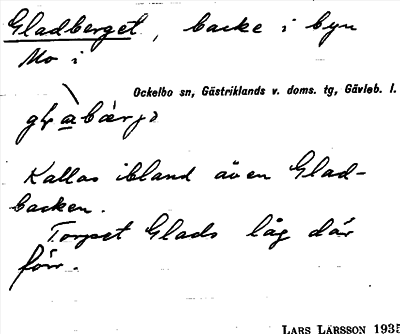 Gladberget, backe i byn
Mo i
Ockelbo sn, Gästriklands v. doms. tg, Gävleb. l.
Kallas ibland även Glad-
backen.
Torpet Glads låg där
förr.
LARS LARSSON 1935